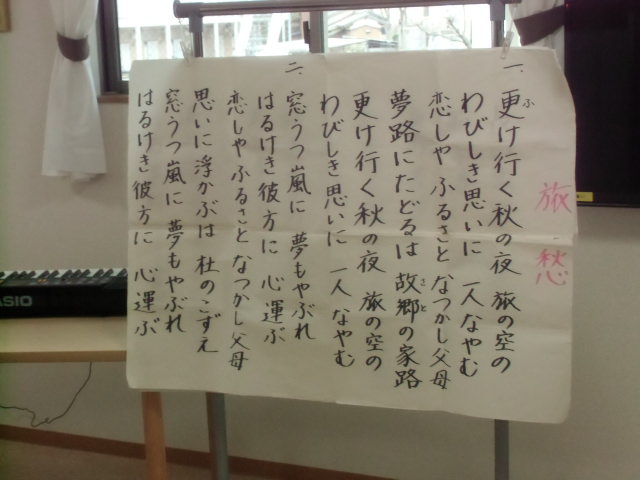 旅愁
一、更け行く秋の夜 旅の空の
わびしき思いに 一人なやむ
恋しや ふるさと なつかし父母
夢路にたどるは 故郷の家路
更け行く秋の夜 旅の空の
わびしき思いに 一人なやむ
二、窓うつ嵐に 夢もやぶれ
はるけき彼方に 心運ぶ
恋しや ふるさと なつかし父母
思いに浮かぶは 杜のこずえ
窓うつ嵐に 夢もやぶれ
はるけき彼方に 心運ぶ
ふ
さと
CASIO